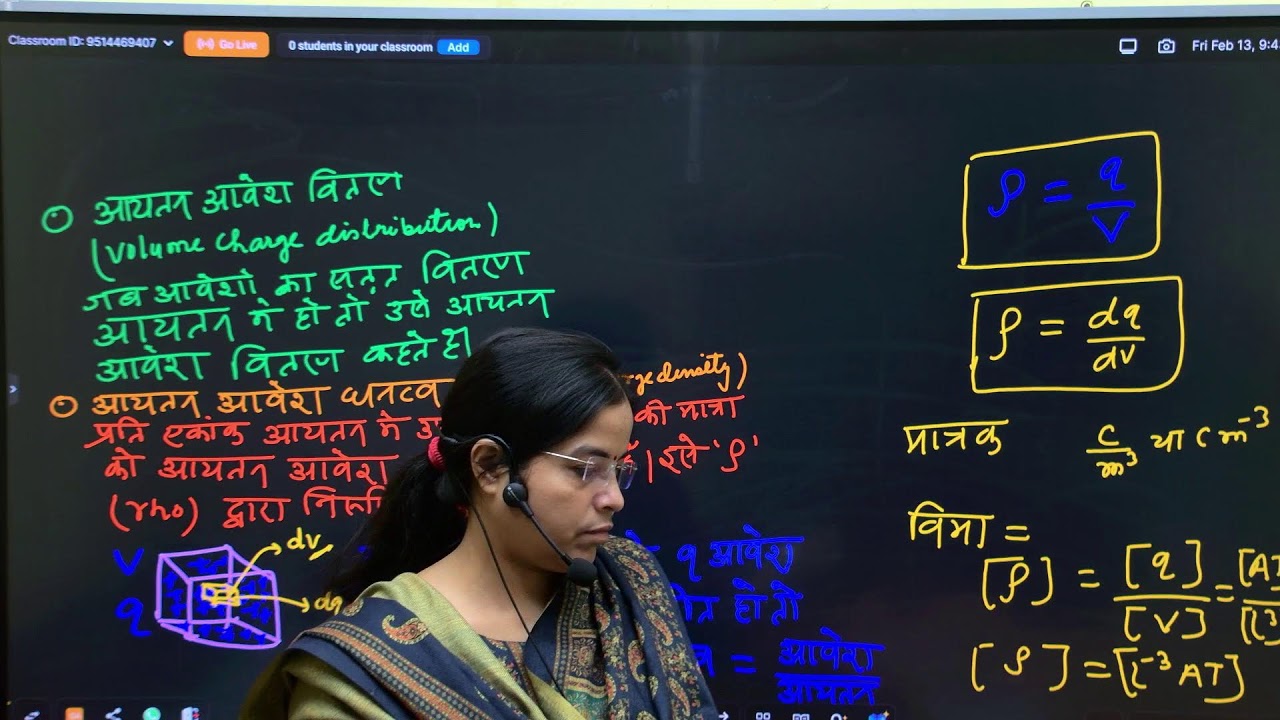 Classroom ID: 9514469407 Go Live 0 students in your classroom Add Fri Feb 13, 9:4
आयतन आवेश वितरण
(volume charge distribution)
जब आवेशो का सतत वितरण
आयतन मे हो तो उसे आयतन
आवेश वितरण कहते है।
आयतन आवेश घनत्व density)
प्रति एकांक आयतन मे की मात्रा
को आयतन आवेश इसे 'ρ'
(rho) द्वारा
V
q
dv
dq
q आवेश
हो तो
= आवेश/आयतन
ρ = q/V
ρ = dq/dv
मात्रक C/m³ या C m⁻³
विमा =
[ρ] = [q]/[V] =
[ρ] = [L⁻³ AT]